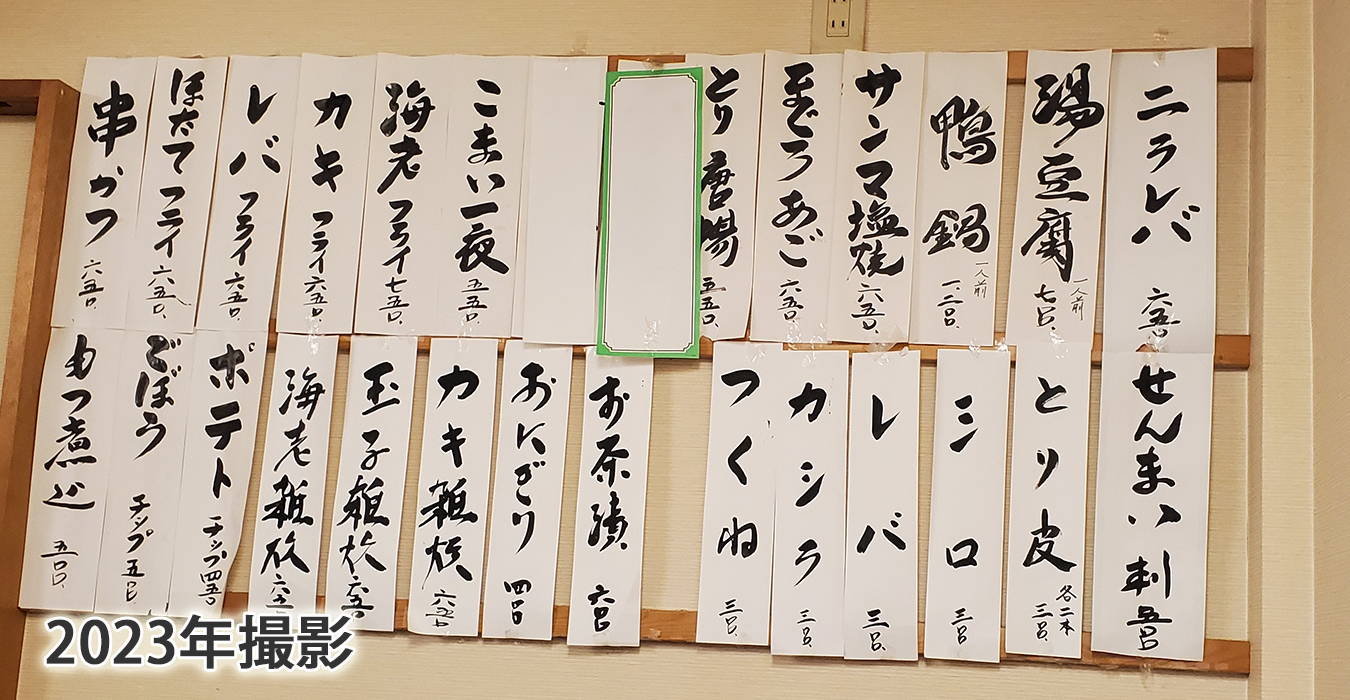 ニラレバ 六五〇
湯豆腐 一人前 七〇〇
鴨鍋 一人前 一、二〇〇
サンマ塩焼 六五〇
まぐろあご 六五〇
とり唐揚 五五〇
こまい一夜 五五〇
海老フライ 七五〇
カキフライ 六五〇
レバフライ 六五〇
ほたてフライ 六五〇
串かつ 六五〇
せんまい刺 五〇〇
とり皮 各二本 三〇〇
シロ 三〇〇
レバ 三〇〇
カシラ 三〇〇
つくね 三〇〇
お茶漬 六〇〇
おにぎり 四〇〇
カキ雑炊 六五〇
玉子雑炊 六五〇
海老雑炊 六五〇
ポテトチップ 四五〇
ごぼうチップ 五〇〇
もつ煮込 五〇〇
2023年撮影